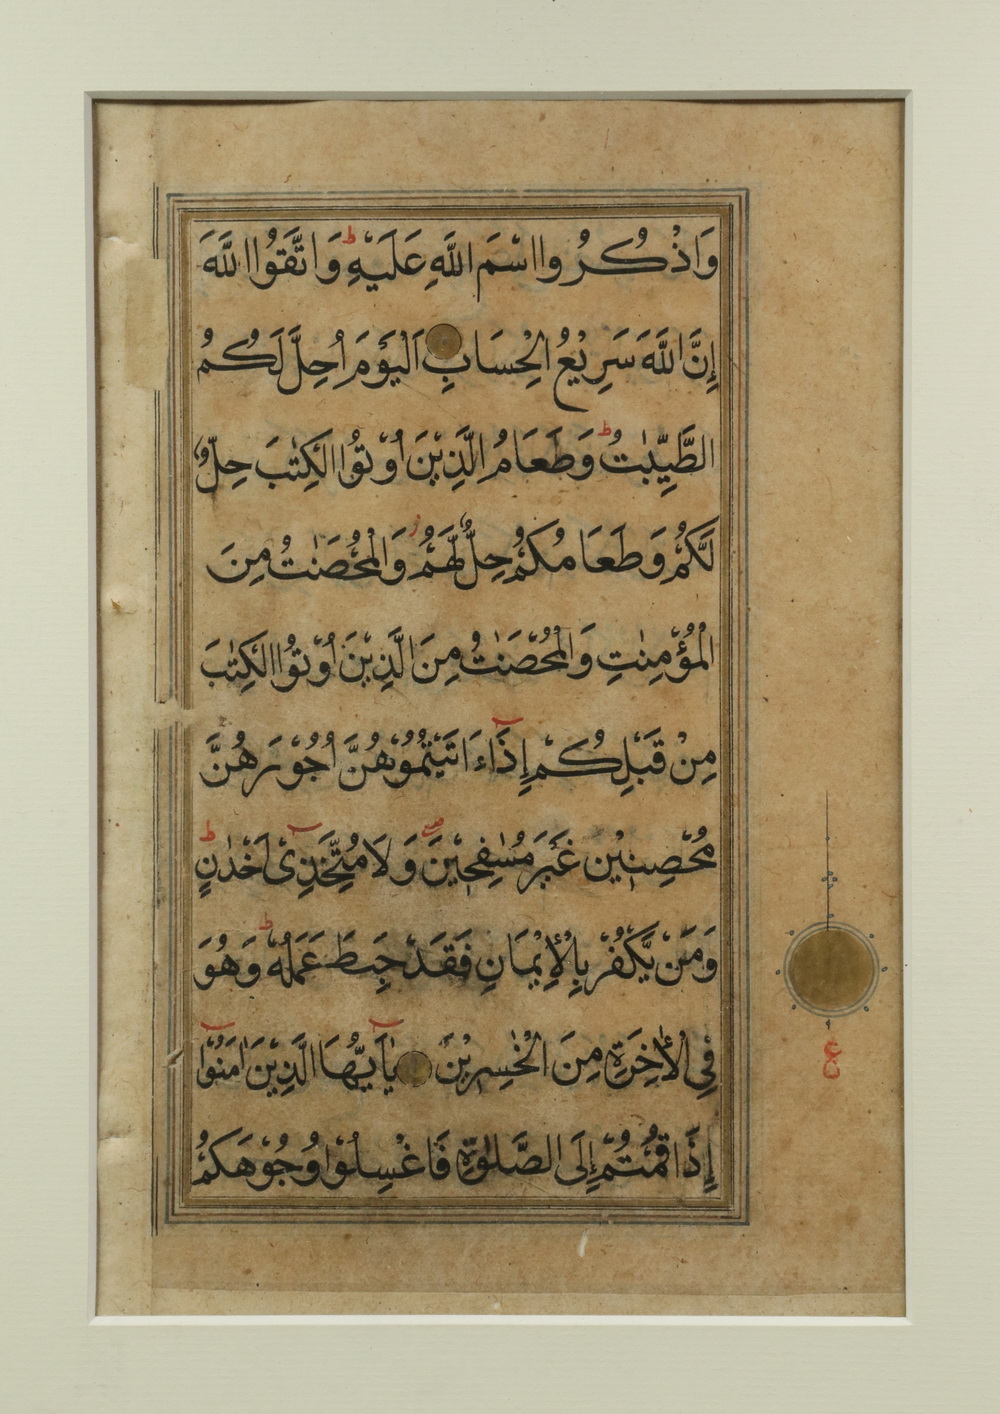 وَاذْكُرُوا اسْمَ اللَّهِ عَلَيْهِ ط وَاتَّقُوا اللَّهَ
إِنَّ اللَّهَ سَرِيْعُ الْحِسَابِ اَلْيَوْمَ اُحِلَّ لَكُمُ
الطَّيِّبٰتُ ط وَطَعَامُ الَّذِيْنَ اُوْتُوا الْكِتٰبَ حِلٌّ
لَكُمْ وَطَعَامُكُمْ حِلٌّ لَهُمْ ز وَالْمُحْصَنٰتُ مِنَ
الْمُؤْمِنٰتِ وَالْمُحْصَنٰتُ مِنَ الَّذِيْنَ اُوْتُوا الْكِتٰبَ
مِنْ قَبْلِكُمْ إِذَاءَاتَيْتُمُوْهُنَّ اُجُوْرَهُنَّ
مُحْصِنِيْنَ غَيْرَ مُسٰفِحِيْنَ وَلَا مُتَّخِذِىْ اَخْدٰنٍ ط
وَمَنْ يَّكْفُرْ بِالْاِيْمَانِ فَقَدْ حَبِطَ عَمَلُهُ ط وَهُوَ
فِى الْاٰخِرَةِ مِنَ الْخٰسِرِيْنَ يٰاَيُّهَا الَّذِيْنَ اٰمَنُوْا
إِذَا قُمْتُمْ إِلَى الصَّلٰوةِ فَاغْسِلُوْا وُجُوْهَكُمْ
ع